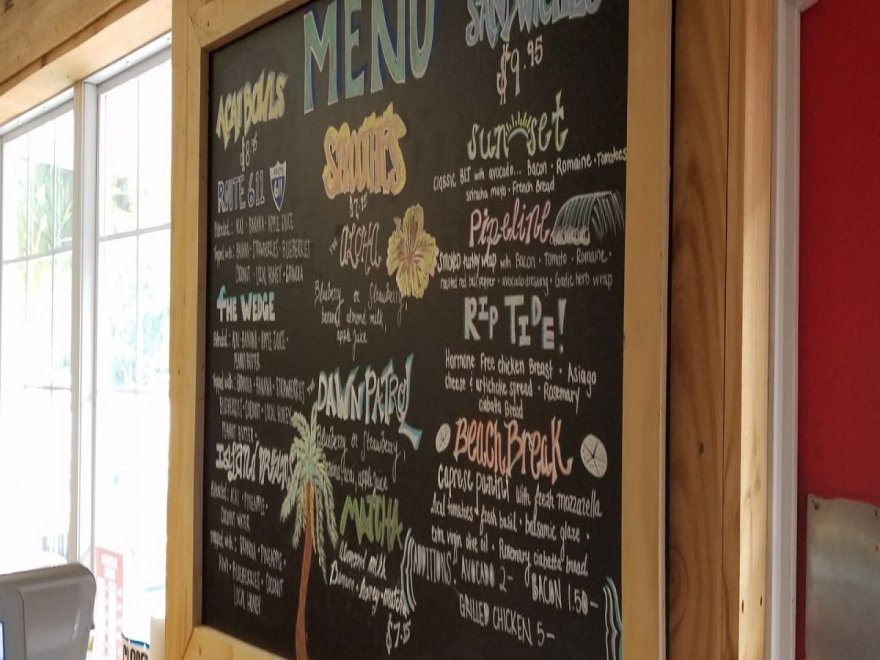 MENU
ACAI BOWLS
ROUTE 611
611
Blended: · BANANA · APPLE JUICE
topped with: BANANA · STRAWBERRIES · BLUEBERRIES
COCONUT · LOCAL HONEY · GRANOLA
THE WEDGE
Blended: · BANANA · APPLE JUICE ·
BUTTER
topped with: · BANANA · STRAWBERRY ·
BLUEBERRIES · COCONUT · LOCAL HONEY ·
PEANUT BUTTER
ISLAND
Blended: · PINEAPPLE ·
COCONUT WATER
topped with: · BANANA · PINEAPPLE ·
KIWI · BLUEBERRIES · COCONUT
LOCAL HONEY
SMOOTHIES
ALOHA
Blueberry or Strawberry
banana, almond milk,
apple juice
DAWN PATROL
Blueberry or Strawberry,
apple juice
MATCHA
Almond milk
Banana · honey · matcha
$7.95
SANDWICHES
$9.95
sunset
CLASSIC BLT with avocado... Bacon · Romaine · Tomatoes
sriracha mayo · French Bread
Pipeline
SMOKED turkey wrap with Bacon · Tomato · Romaine ·
roasted red bell pepper · avocado dressing · Garlic herb wrap
RIP TIDE!
Hormone Free chicken Breast · Asiago
cheese & artichoke spread · Rosemary
ciabatta Bread
Beach Break
caprese panini with fresh mozzarella
tomatoes · fresh basil · balsamic glaze ·
extra virgin olive oil · Rosemary ciabatta bread
ADDITIONS: AVOCADO 2- BACON 1.50-
GRILLED CHICKEN 5-